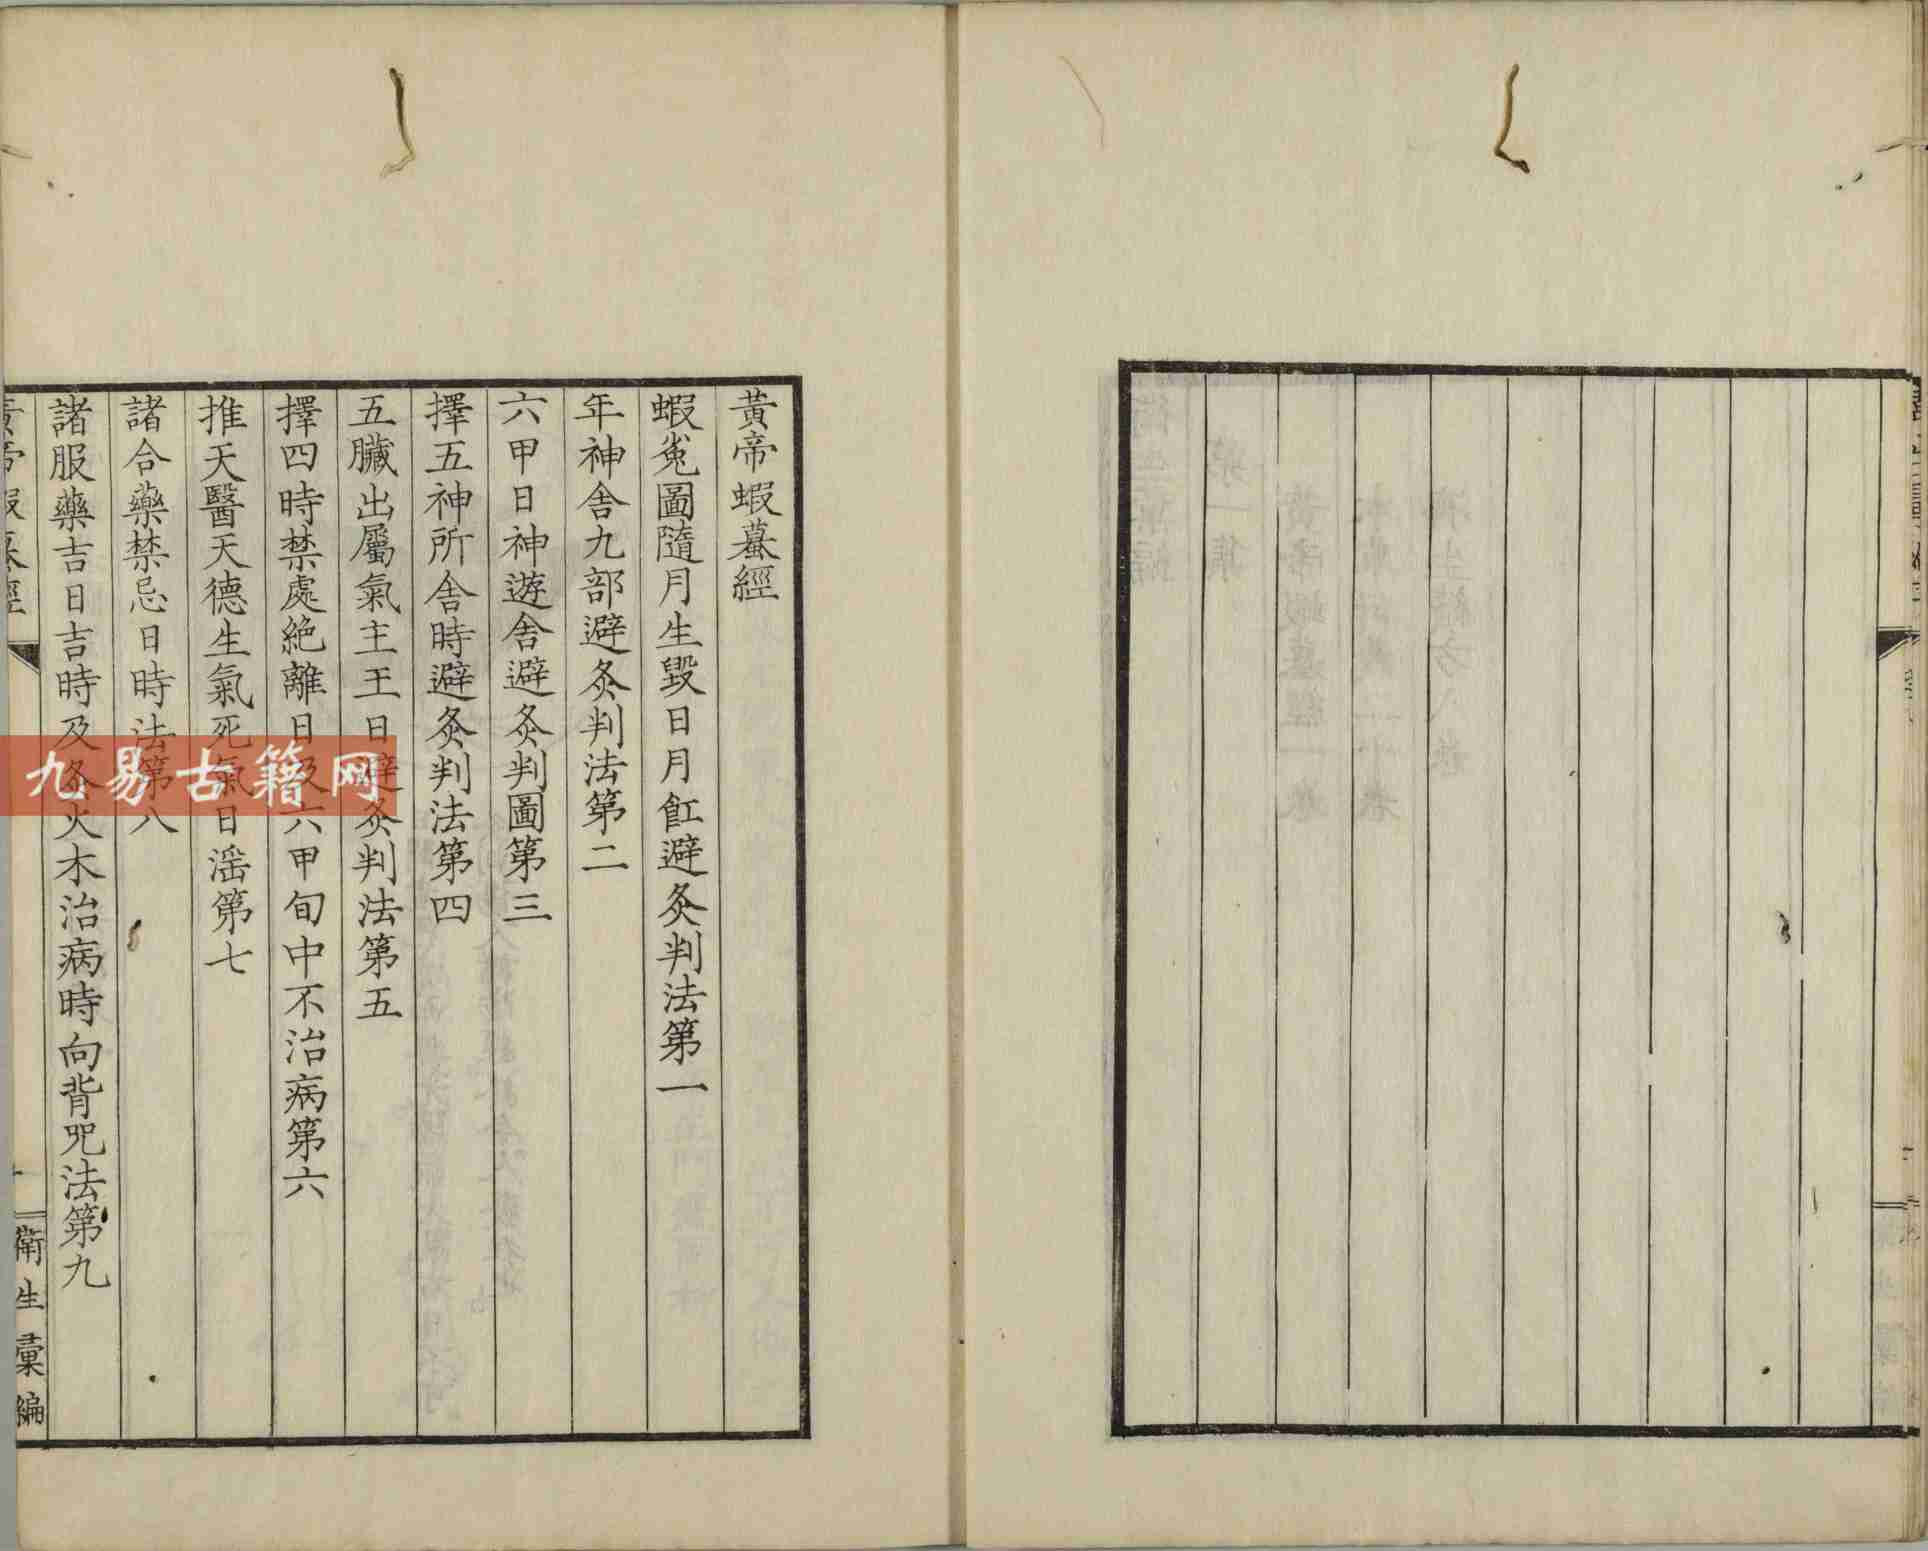 黃帝蝦蟇經
蝦兔圖隨月生毀日月飣避灸判法第一
年神舍九部避灸判法第二
六甲日神遊舍避灸判圖第三
擇五神所舍時避灸判法第四
五臟出屬氣主王日避灸判法第五
擇四時禁處絶離日及六甲旬中不治病第六
推天醫天德生氣死氣日滛第七
諸合藥禁忌日時法第八
諸服藥吉日吉時及灸火木治病時向背咒法第九
黃帝蝦蟇經
衛生彙編
九易古籍网